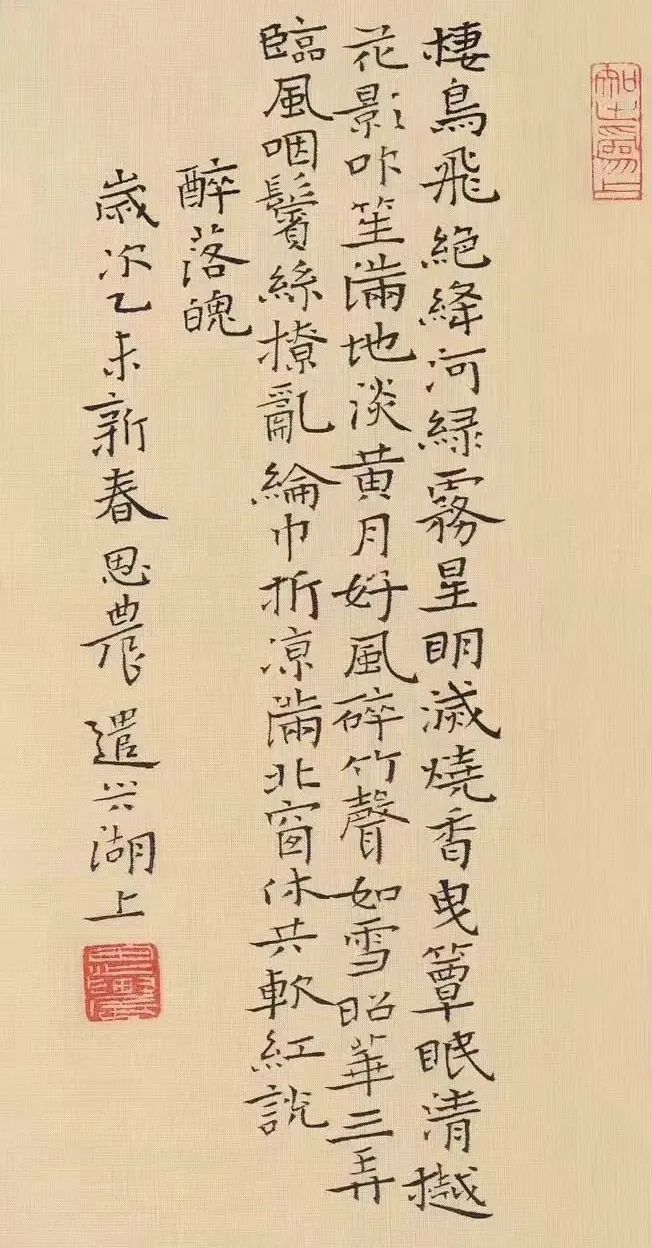 棲鳥飛絶絳河緑霧星明滅燒香曳簟眠清樾
花影吹笙滿地淡黄月好風碎竹聲如雪昭華三弄
臨風咽鬢絲撩亂綸巾折凉滿北窗休共軟紅説
醉落魄
歲次乙未新春思農遣興湖上